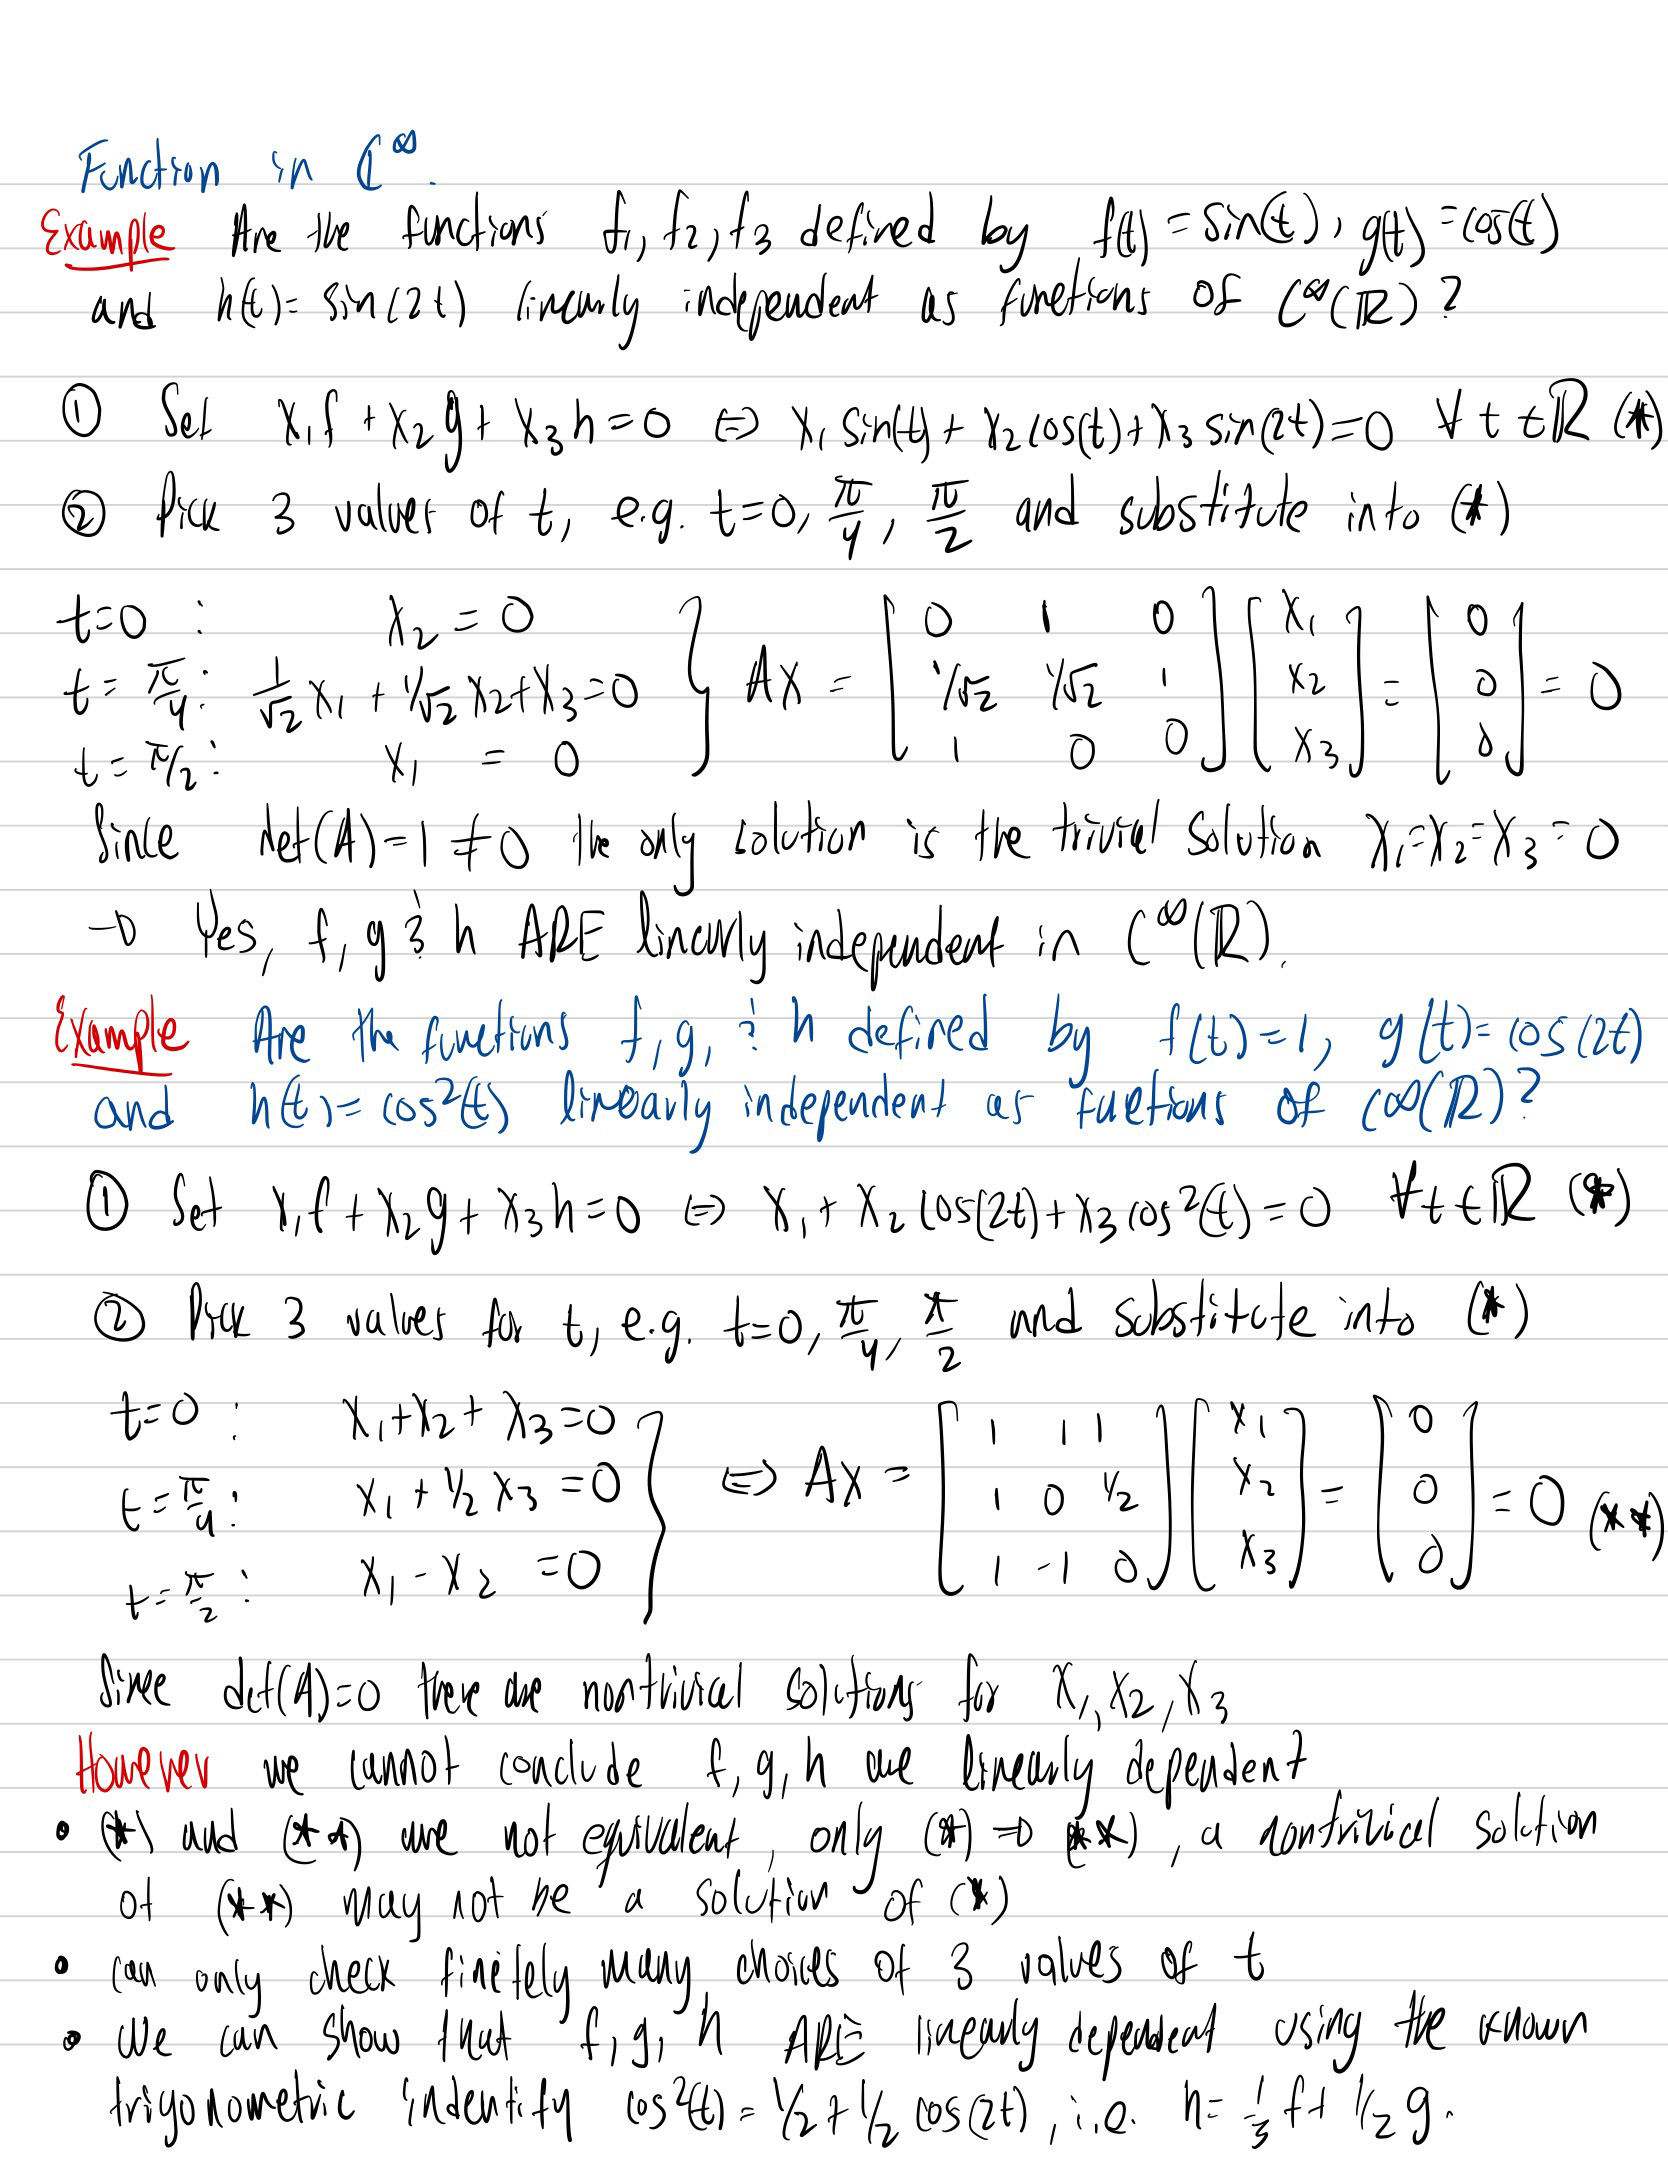 Function in C^∞.
Example Are the functions f1, f2, f3 defined by f(t) = sin(t), g(t) = cos(t)
and h(t) = sin(2t) linearly independent as functions of C^∞(ℝ)?
① Set x₁f + x₂g + x₃h = 0 ⇔ x₁ sin(t) + x₂ cos(t) + x₃ sin(2t) = 0 ∀ t ∈ ℝ (*)
② Pick 3 values of t, e.g. t=0, π/4, π/2 and substitute into (*)
t=0 : x₂ = 0
t = π/4: 1/√2 x₁ + 1/√2 x₂ + x₃ = 0 } Ax = [0 1 0; 1/√2 1/√2 1; 1 0 0] [x₁; x₂; x₃] = [0; 0; 0] = 0
t = π/2: x₁ = 0
Since det(A) = 1 ≠ 0 the only solution is the trivial solution x₁ = x₂ = x₃ = 0
→ Yes, f, g & h ARE linearly independent in C^∞(ℝ).
Example Are the functions f, g, & h defined by f(t) = 1, g(t) = cos(2t)
and h(t) = cos²(t) linearly independent as fuctions of C^∞(ℝ)?
① Set x₁f + x₂g + x₃h = 0 ⇔ x₁ + x₂ cos(2t) + x₃ cos²(t) = 0 ∀ t ∈ ℝ (*)
② Pick 3 values for t, e.g. t=0, π/4, π/2 and substitute into (*)
t=0 : x₁ + x₂ + x₃ = 0
t = π/4: x₁ + 1/2 x₃ = 0 } ⇔ Ax = [1 1 1; 1 0 1/2; 1 -1 0] [x₁; x₂; x₃] = [0; 0; 0] = 0 (**)
t = π/2: x₁ - x₂ = 0
Since det(A) = 0 there are nontrivial solutions for x₁, x₂, x₃
However we cannot conclude f, g, h are linearly dependent
• (*) and (**) are not equivalent, only (*) ⇒ (**), a nontrivial solution
of (**) may not be a solution of (*)
• can only check finitely many choices of 3 values of t
• We can show that f, g, h ARE linearly dependent using the known
trigonometric indentity cos²(t) = 1/2 + 1/2 cos(2t), i.e. h = 1/3 f + 1/2 g.